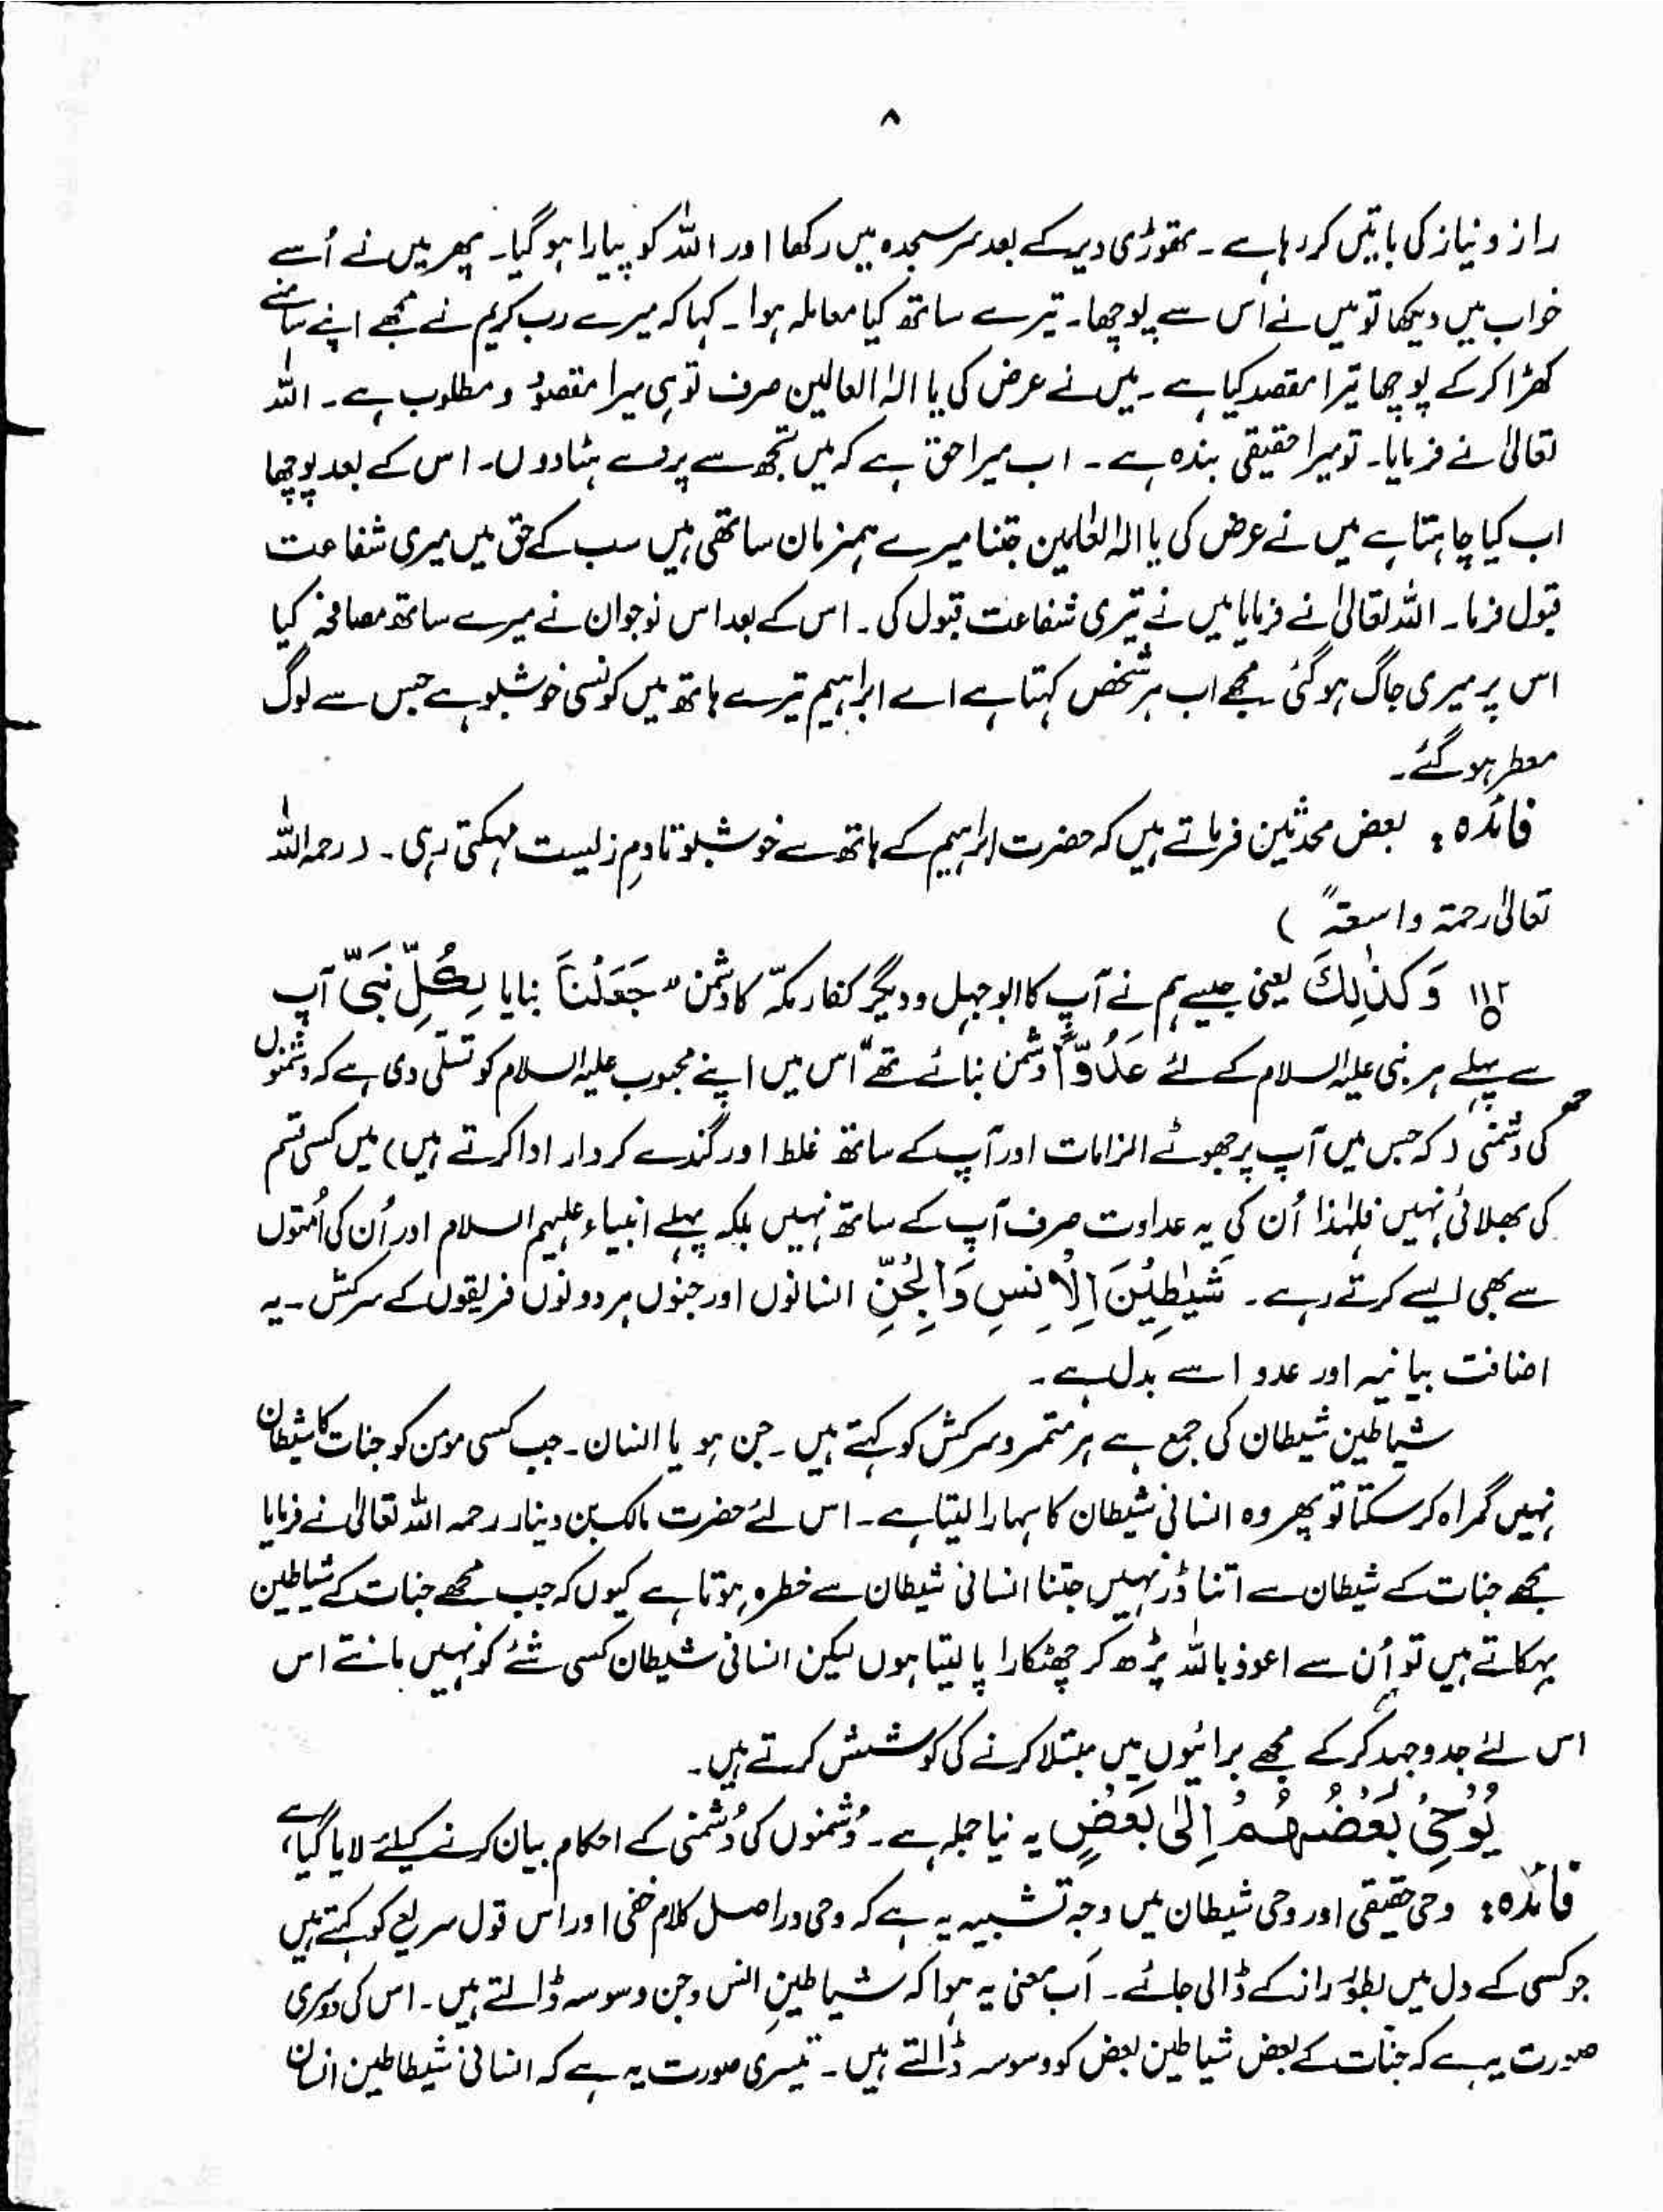 ۸
راز و نیاز کی باتیں کر رہا ہے ۔ تھوڑی دیر کے بعد سر سجدہ میں رکھا اور اللہ کو پیارا ہو گیا ۔ پھر میں نے اُسے
خواب میں دیکھا تو میں نے اُس سے پوچھا ۔ تیرے ساتھ کیا معاملہ ہوا ۔ کہا کہ میرے رب کریم نے مجھے اپنے سامنے
کھڑا کر کے پوچھا تیرا مقصد کیا ہے ۔ میں نے عرض کی یا الٰہ العالمین صرف تو ہی میرا مقصود و مطلوب ہے ۔ اللہ
تعالیٰ نے فرمایا ۔ تو میرا حقیقی بندہ ہے ۔ اب میرا حق ہے کہ میں تجھ سے پردے ہٹا دوں ۔ اس کے بعد پوچھا
اب کیا چاہتا ہے میں نے عرض کی یا الٰہ العٰلمین جتنا میرے ہمزمان ساتھی ہیں سب کے حق میں میری شفاعت
قبول فرما ۔ اللہ تعالیٰ نے فرمایا میں نے تیری شفاعت قبول کی ۔ اس کے بعد اس نوجوان نے میرے ساتھ مصافحہ کیا
اس پر میری جاگ ہو گئی ۔ مجھے اب ہر شخص کہتا ہے اے ابراہیم تیرے ہاتھ میں کونسی خوشبو ہے جس سے لوگ
معطر ہو گئے ۔
فائدہ : بعض محدثین فرماتے ہیں کہ حضرت ابراہیم کے ہاتھ سے خوشبو تادمِ زیست مہکتی رہی ۔ ( رحمہ اللہ
تعالیٰ رحمۃ واسعۃً )
۱۱۲ وَ کَذٰلِكَ یعنی جیسے ہم نے آپ کا ابوجہل و دیگر کفار مکہّ کا دشمن " جَعَلْنَا بنایا لِكُلِّ نَبِیٍّ آپ
سے پہلے ہر نبی علیہ السلام کے لئے عَدُوًّا دشمن بنائے تھے " اس میں اپنے محبوب علیہ السلام کو تسلّی دی ہے کہ دشمنوں
کی دشمنی ( کہ جس میں آپ پر جھوٹے الزامات اور آپ کے ساتھ غلط اور گندے کردار ادا کرتے ہیں ) میں کسی قسم
کی بھلائی نہیں فلہٰذا اُن کی یہ عداوت صرف آپ کے ساتھ نہیں بلکہ پہلے انبیاء علیہم السلام اور اُن کی اُمتوں
سے بھی ایسے کرتے رہے ۔ شَیٰطِیْنَ الْاِنْسِ وَالْجِنِّ انسانوں اور جنوں ہر دونوں فریقوں کے سرکش ۔ یہ
اضافت بیانیہ اور عدوا سے بدل ہے ۔
شیاطین شیطان کی جمع ہے ہر متمرد سرکش کو کہتے ہیں ۔ جن ہو یا انسان ۔ جب کسی مومن کو جنات کا شیطان
نہیں گمراہ کر سکتا تو پھر وہ انسانی شیطان کا سہارا لیتا ہے ۔ اس لئے حضرت مالک بن دینار رحمہ اللہ تعالیٰ نے فرمایا
مجھے جنات کے شیطان سے اتنا ڈر نہیں جتنا انسانی شیطان سے خطرہ ہوتا ہے کیوں کہ جب مجھے جنات کے شیاطین
بہکاتے ہیں تو اُن سے اعوذ باللہ پڑھ کر چھٹکارا پا لیتا ہوں لیکن انسانی شیطان کسی شئے کو نہیں مانتے اس
اس لئے جدوجہد کر کے مجھے برائیوں میں مبتلا کرنے کی کوشش کرتے ہیں ۔
یُوْحِیْ بَعْضُهُمْ اِلٰی بَعْضٍ یہ نیا جملہ ہے ۔ دُشمنوں کی دُشمنی کے احکام بیان کرنے کیلئے لایا گیا ہے ،
فائدہ : وحی حقیقی اور وحی شیطان میں وجہ تشبیہ یہ ہے کہ وحی دراصل کلام خفی اور اس قول سریع کو کہتے ہیں
جو کسی کے دل میں بطور راز کے ڈالی جائے ۔ اَب معنی یہ ہوا کہ شیاطینِ انس و جن وسوسہ ڈالتے ہیں ۔ اس کی دوسری
صورت یہ ہے کہ جنّات کے بعض شیاطین بعض کو وسوسہ ڈالتے ہیں ۔ تیسری صورت یہ ہے کہ انسانی شیطاطین انسان